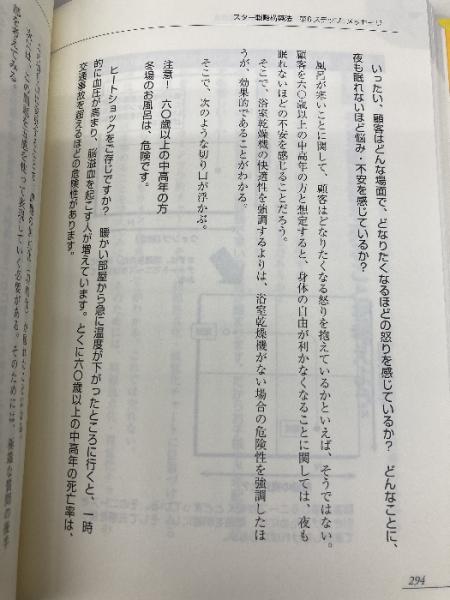 スター戦略構築法
いったい、顧客はどんな場面で、どなりたくなるほどの怒りを感じているか？　どんなことに、
夜も眠れないほど悩み・不安を感じているか？
風呂が寒いことに関して、顧客はどなりたくなる怒りを抱えているかといえば、そうではない。
顧客を六〇歳以上の中高年の方と想定すると、身体の自由が利かなくなることに関しては、夜も
眠れないほどの不安を感じることだろう。
そこで、浴室乾燥機の快適性を強調するよりは、浴室乾燥機がない場合の危険性を強調したほ
うが、効果的であることがわかる。
そこで、次のような切り口が浮かぶ。
注意！　六〇歳以上の中高年の方
冬場のお風呂は、危険です。
ヒートショックをご存じですか？　暖かい部屋から急に温度が下がったところに行くと、一時
的に血圧が高まり、脳溢血を起こす人が増えています。とくに六〇歳以上の中高年の死亡率は、
交通事故を超えるほどの危険性があります。
294